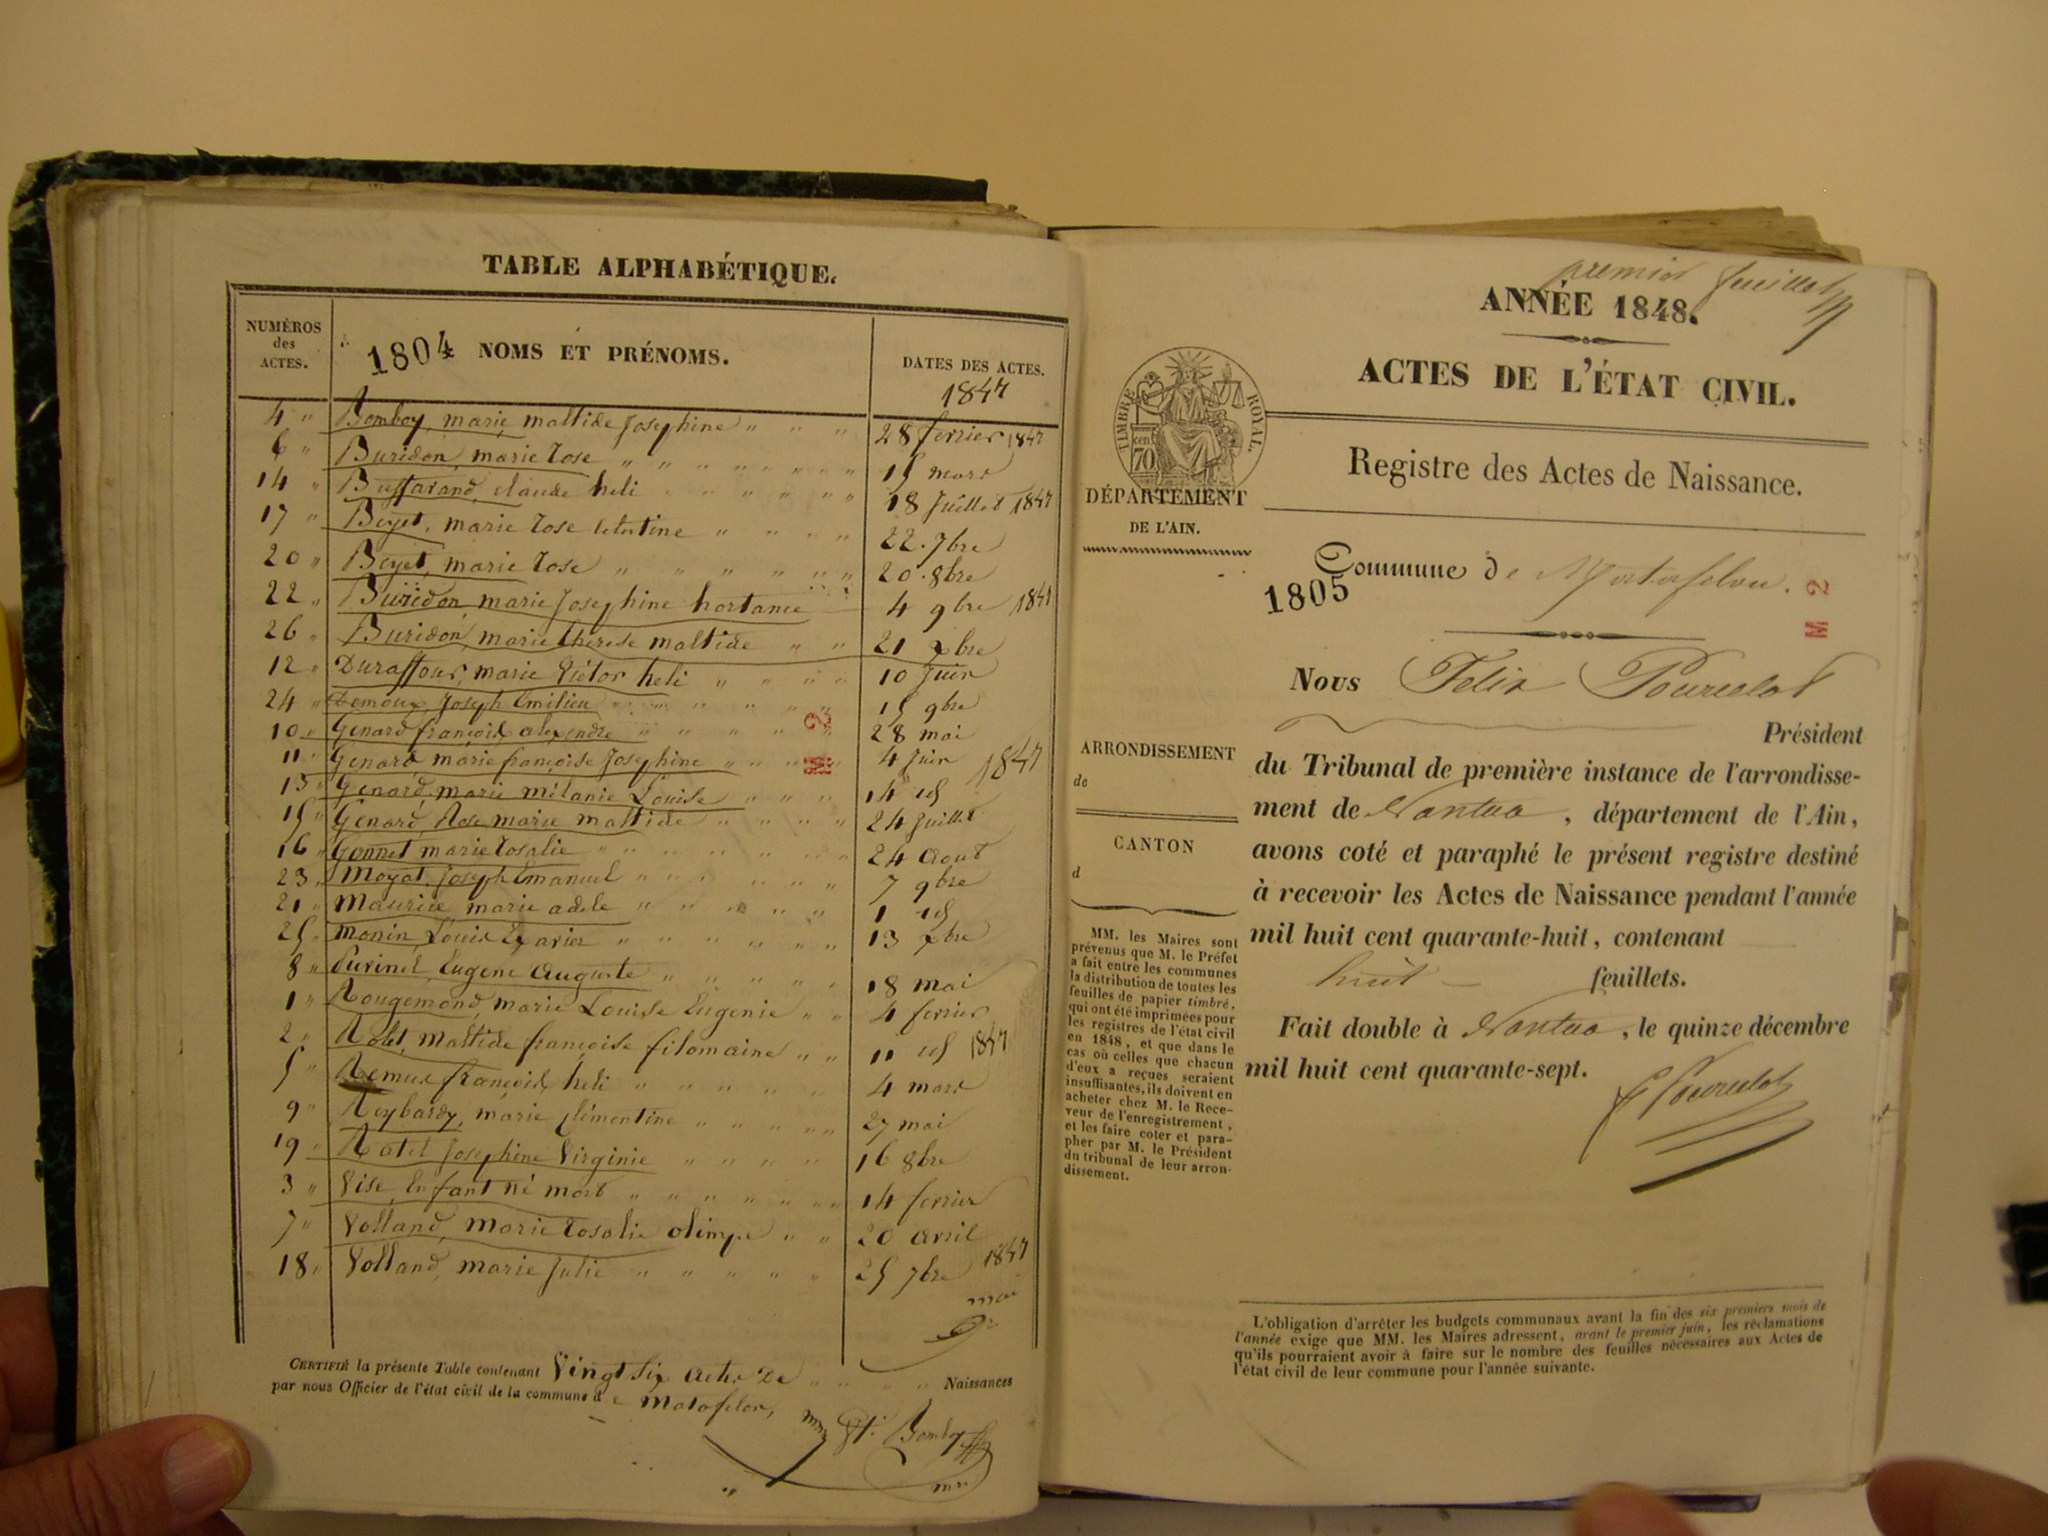 TABLE ALPHABÉTIQUE.
NUMÉROS des ACTES.
1804 NOMS ET PRÉNOMS.
DATES DES ACTES.
1847
4 " Bomboy, marie maltide Josephine " " " 28 fevrier 1847
6 " Buridon, marie Rose " " " " " " " 15 mars
14 " Buffavand, claude heli " " " " " " 18 Juillet 1847
17 " Beyet, marie Rose " " " " 22. 7bre
20 " Beyet, marie Rose " " " " " " 20. 8bre
22 " Buridon, marie Josephine hortance 4 9bre 1847
26 " Buridon, marie therese maltide " " 21 xbre
12 " Duraffour, marie Victor heli " " " " 10 Juin
24 " Joseph Emilien " " " " " 15 9bre
10 " Genard françois alexandre " " " " " 28 mai
11 " Genard marie françoise Josephine " " " " 4 Juin 1847
13 " Genard marie mélanie Louise " " " 14 id
15 " Genard, Rose marie maltide " " " " 24 Juillet
16 " Gonnet marie Rosalie " " " " " " 24 Aout
23 " Moyat, Joseph Emanuel " " " " " " 7 9bre
21 " Maurice marie adele " " " " " " 1 id
25 " Monin, Louis Exavier " " " " " " 13 xbre
8 " Eugene Auguste " " " " " 18 mai
1 " Rougemond, marie Louise Eugenie " " 4 fevrier
2 " maltide françoise filomaine " " 11 id 1847
5 " françois heli " " " " " 4 mars
9 " Reybardy, marie clémentine " " " " " 27 mai
19 " Josephine Virginie " " " " " 16 8bre
3 " Vise, Enfant né mort " " " " " " 14 fevrier
7 " Volland, marie Rosalie olimpe " " 20 avril
18 " Volland, marie Julie " " " " " 25 7bre 1847
M 2
CERTIFIÉ la présente Table contenant Vingt Six actes de " " " " Naissances
par nous Officier de l'état civil de la commune de Matafelon,
Bomboy
premier feuillet
ANNÉE 1848.
ACTES DE L'ÉTAT CIVIL.
TIMBRE ROYAL
70 cen
Registre des Actes de Naissance.
DÉPARTEMENT
DE L'AIN.
Commune de Matafelon.
1805
M 2
Nous Felix Pourcelot
Président
du Tribunal de première instance de l'arrondisse-
ment de Nantua, département de l'Ain,
avons coté et paraphé le présent registre destiné
à recevoir les Actes de Naissance pendant l'année
mil huit cent quarante-huit, contenant
huit feuillets.
Fait double à Nantua, le quinze décembre
mil huit cent quarante-sept.
Pourcelot
ARRONDISSEMENT
de
CANTON
d
MM. les Maires sont
prévenus que M. le Préfet
a fait entre les communes
la distribution de toutes les
feuilles de papier timbré,
qui ont été imprimées pour
les registres de l'état civil
en 1848, et que dans le
cas où celles que chacun
d'eux a reçues seraient
insuffisantes, ils doivent en
acheter chez M. le Rece-
veur de l'enregistrement,
et les faire coter et para-
pher par M. le Président
du tribunal de leur arron-
dissement.
L'obligation d'arrêter les budgets communaux avant la fin des six premiers mois de
l'année exige que MM. les Maires adressent, avant le premier juin, les réclamations
qu'ils pourraient avoir à faire sur le nombre des feuilles nécessaires aux Actes de
l'état civil de leur commune pour l'année suivante.